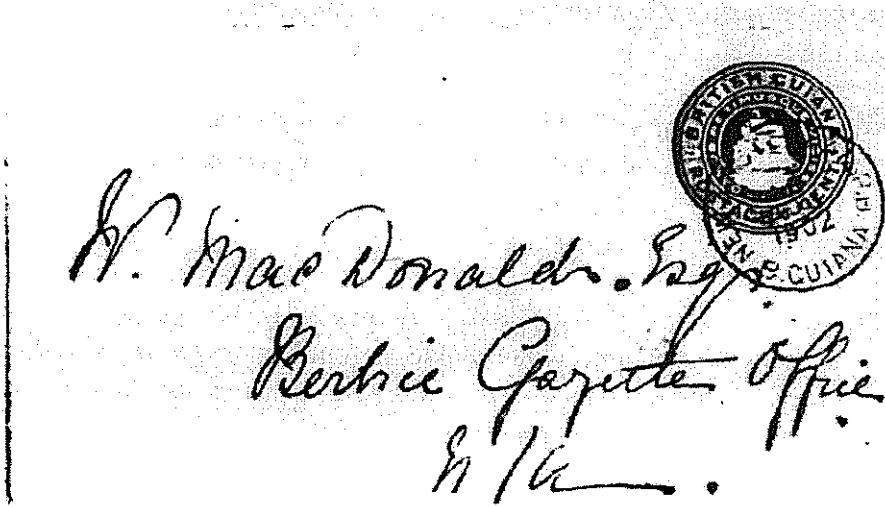 BRITISH GUIANA
POSTAGE
1902
B. GUIANA
W. MacDonald. Esqr.
Berbice Gazette Office.
N/A.